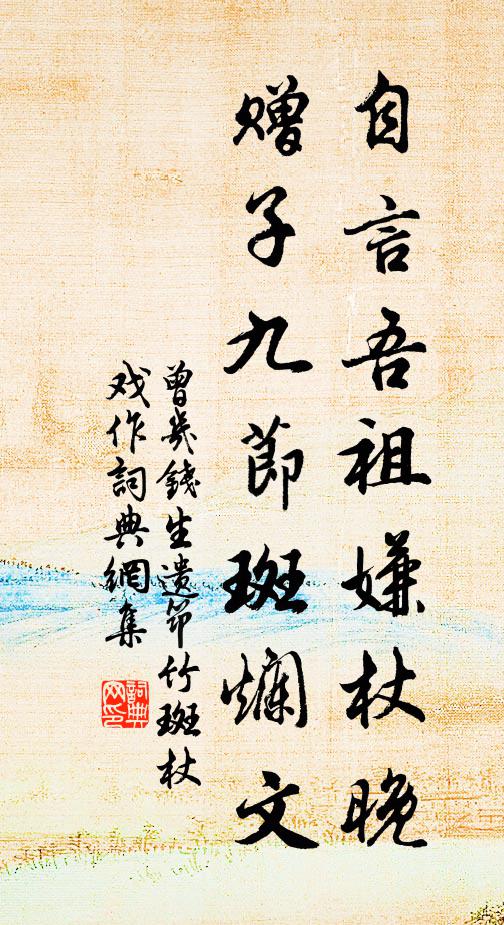 自言吾祖嫌杖晚
赠子九節斑斕文
曾幾錢生遺笻竹斑杖
戏作詞典網集
詞典
网印